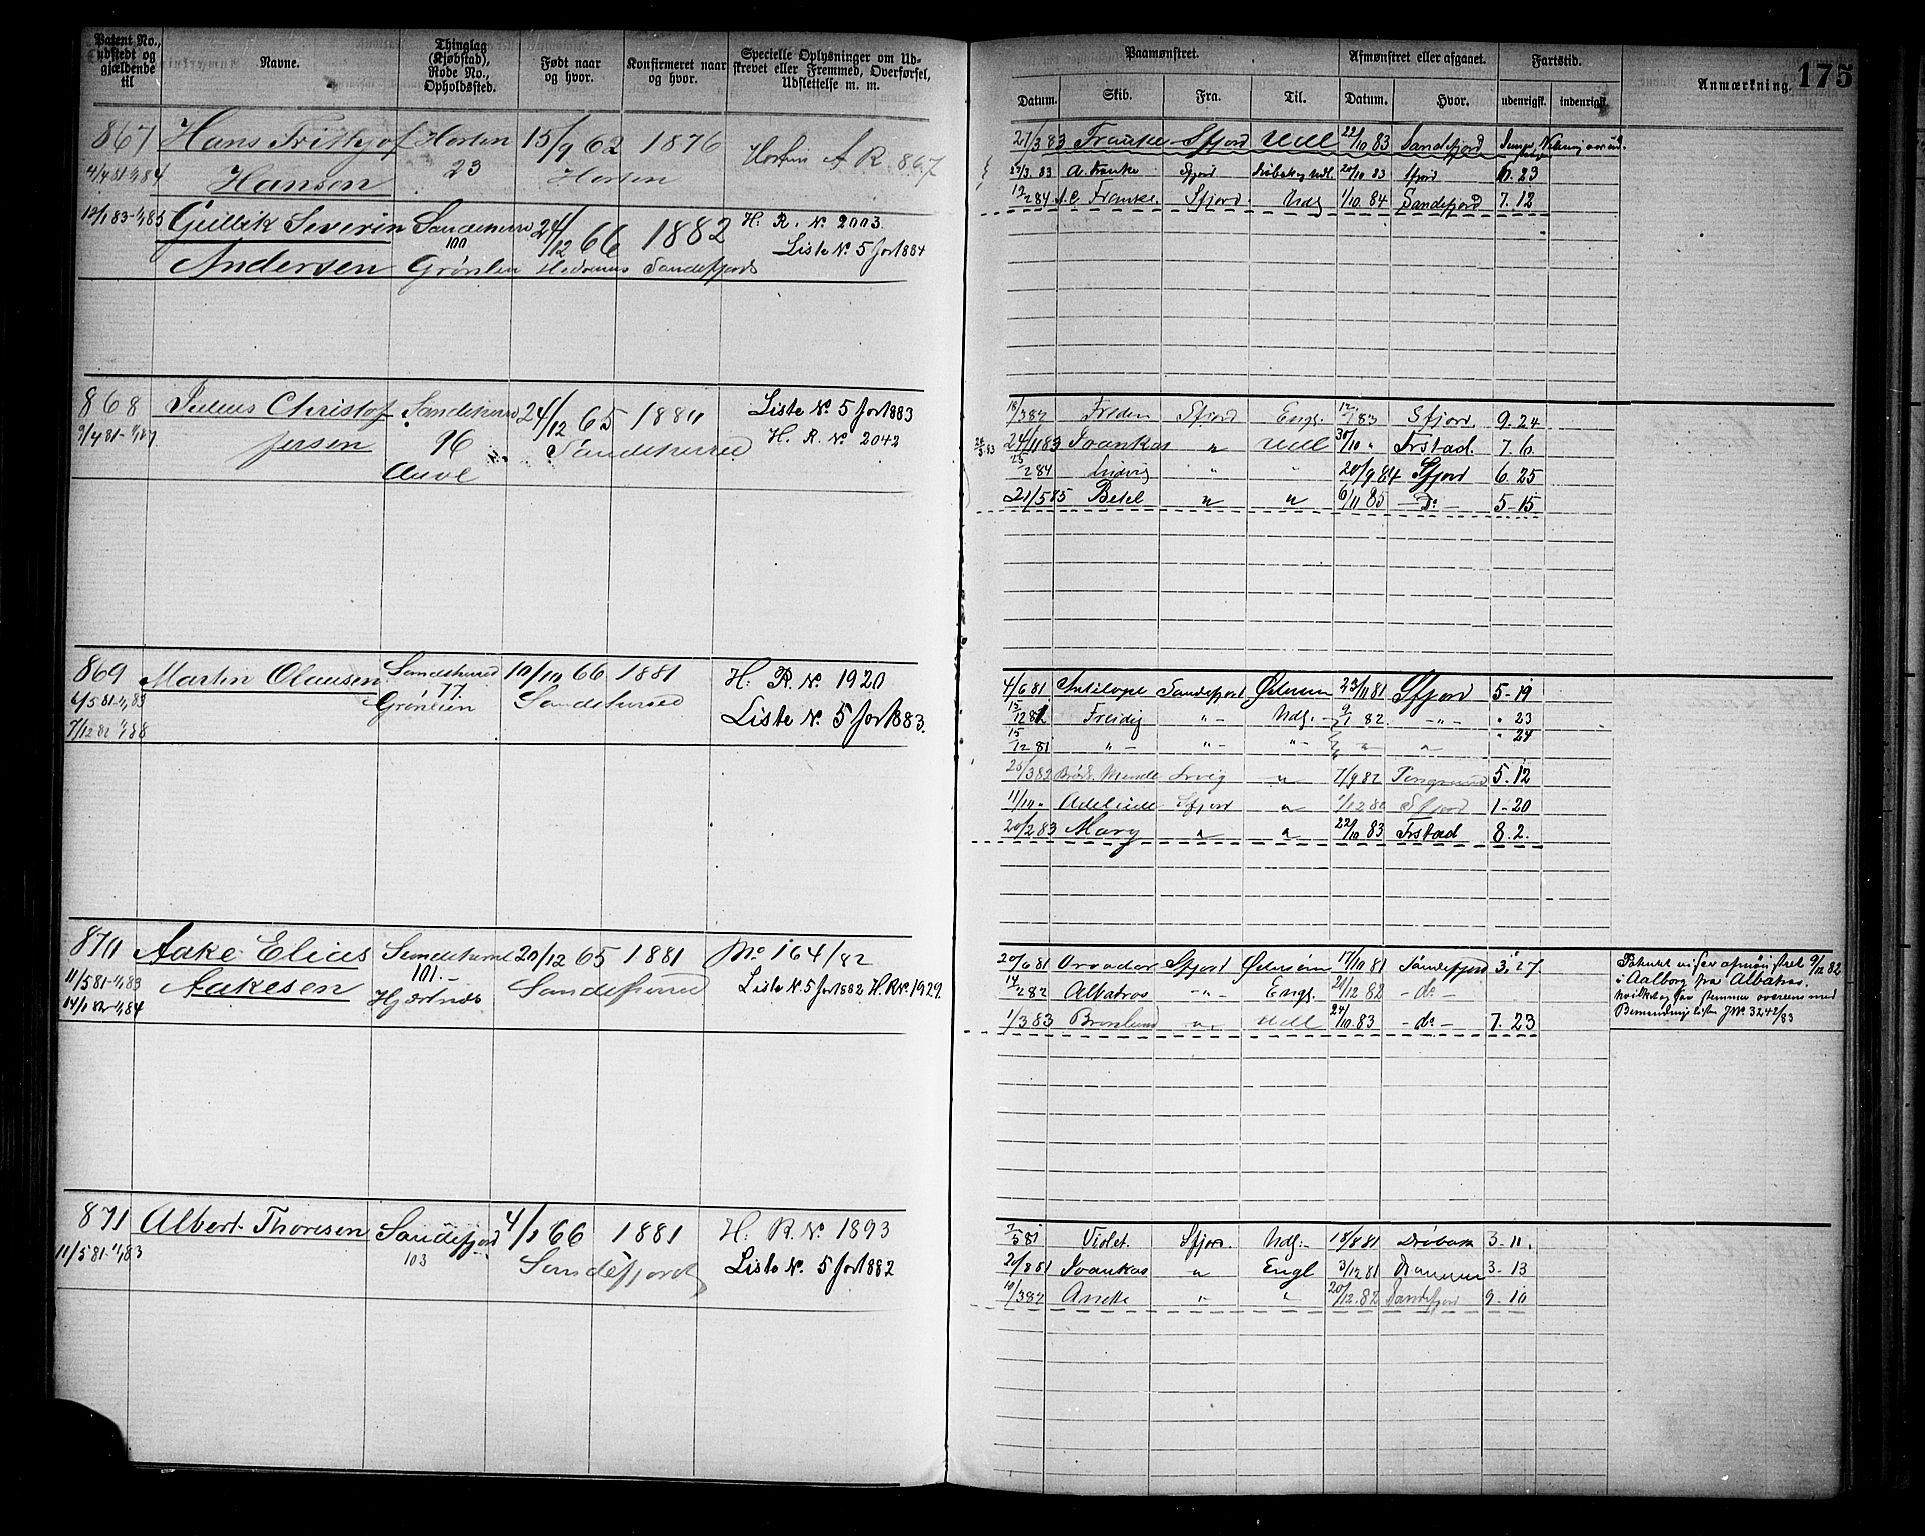 Patent No., udstedt og gjældende til
Navne.
Thinglag (Kjøbstad), Rode No., Opholdssted.
Født naar og hvor.
Konfirmeret naar og hvor.
Specielle Oplysninger om Udskrevet eller Fremmed, Overførsel, Udslettelse m. m.
Paamønstret.
Afmønstret eller afgaaet.
Fartstid.
Anmærkning.
175
Datum.
Skib.
Fra.
Til.
Datum.
Hvor.
udenrigsk.
indenrigsk.
867 Hans Frithjof Horten 15/9 62 1876 Horten A R. 867
4/4 81-1/1 84 Hansen 23 Horten
12/1 83-1/1 85 Gullik Severin Sandeherred 24/12 66 1882 H. R. No. 2003.
100 Liste No. 5 for 1884
Andersen Grønlien Sandefjord
21/3 83 Franke Sfjord Udl 22/10 83 Sandefjord
Sfjord 20/10 83 Sfjord 6. 23
19/2 84 A. C. Franke. Sfjord Udg 1/10 84 Sandefjord 7. 12
868 Julius Christof Sandeherred 24/12 65 1881 Liste No. 5 for 1883
9/4 81-1/1 87 Jersen 96 Sandeherred H. R. No. 2042
Freden Sfjord Engl. Sfjord. 9. 24
24/11 83 Ivankas " Udl 30/10 " Frstad. 7. 6
25/2 84 Ludvig " " 20/9 84 Sfjord 6. 25
21/5 85 Betel " " 6/11 85 - Do - 5-15
869 Martin Olausen Sandeherred 10/10 66 1881 H. R. No. 1920
6/5 81-1/1 83 77 Sandeherred
7/12 82 1/1 88 Grønlien Liste No. 5 for 1883.
4/6 81 Antilope Sandefjord 23/11 81 Sfjord 5-19
15/12 81 Freidig - " - Udg. 9/1 82 - " - " 23
15/12 81 " - " - " - " " " 24
25/3 82 " 7/9 82 5. 12
11/10 " Adelaide Sfjord " Sfjord 1-20
20/2 83 Mary " " 22/10 83 Frstad 8. 2.
870 Aake Elius Sandeherred 20/12 65 1881 No 164/82
11/5 81-1/1 83 Aakesen 101.- Sandeherred Liste No. 5 for 1882 H. R No. 1929.
14/1 82-1/1 84 Hjertnæs
20/6 81 Sfjord 17/10 81 Sandefjord 3. 27.
14/2 82 Albatros - " - Engl. 21/12 82 - do -
1/3 83 " Udl 24/10 83 - do - 7. 23
Patentet viser afmønstret 9/12 82
i Aalborg fra Albatros.
hvilket og saa stemmer overens med
Bemandingslisten JNo. 3242/83
871 Albert Thoresen Sandefjord 4/1 66 1881 H. R. No. 1893
11/5 81-1/1 83 103 Sandefjord Liste No. 5 for 1882
7/5 81 Violet. Sfjord. Udg. 18/8 81 Drøbak 3-11.
20/8 81 Ivankas " Engl 3/12 81 Drammen 3-13
10/3 82 " " 20/12 82 Sandefjord 9-10